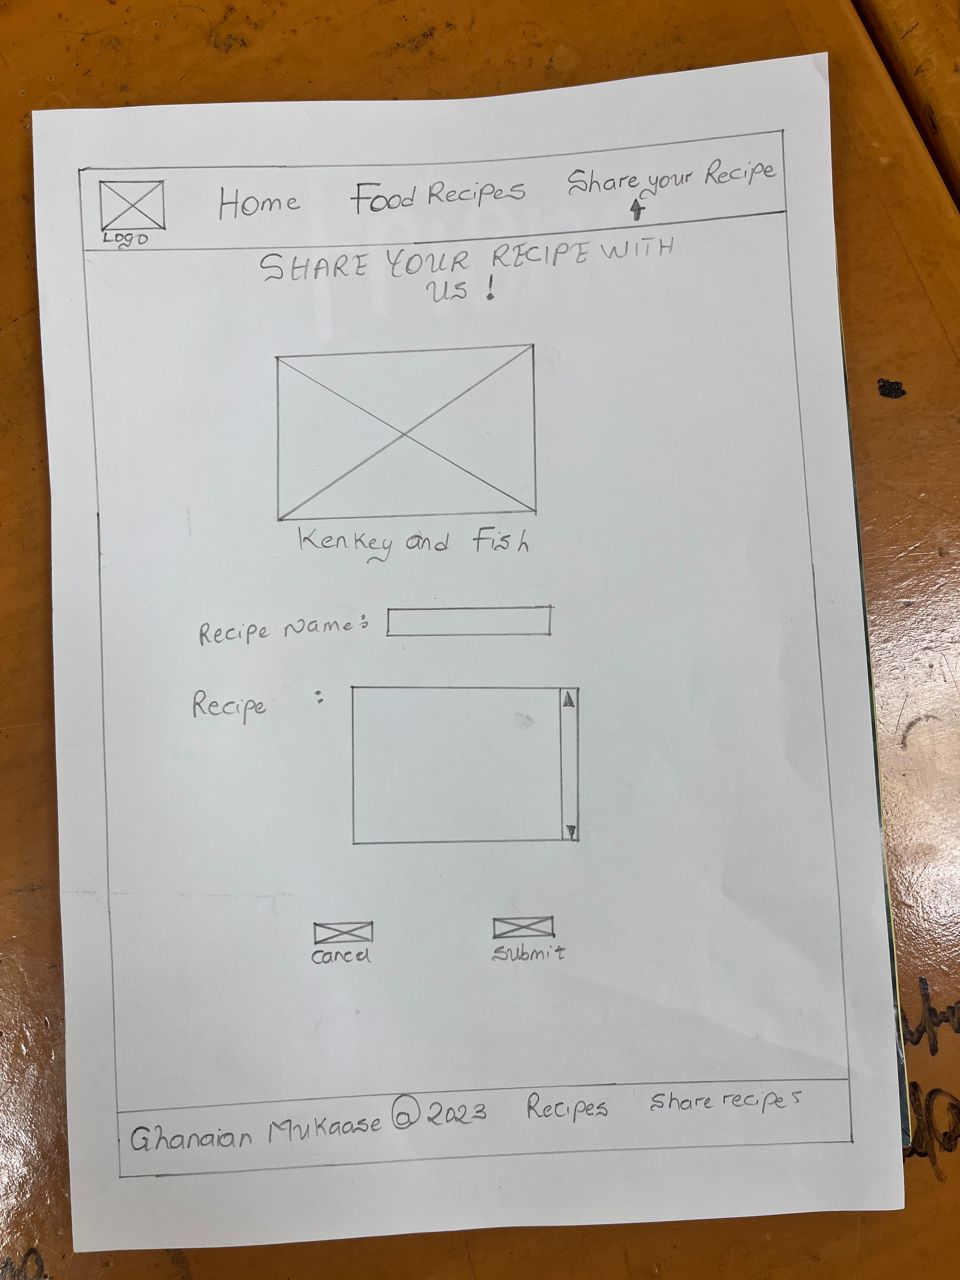 Home Food Recipes Share your Recipe
Logo
SHARE YOUR RECIPE WITH
US !
Kenkey and Fish
Recipe Name :
Recipe :
Cancel Submit
Ghanaian Mukaase @ 2023 Recipes Share recipes